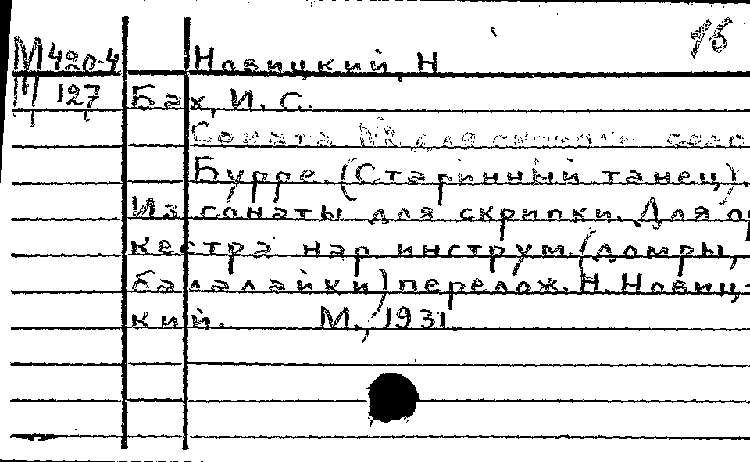 16
М 420-4 Новицкий, Н
127 Бах, И. С.
Соната № для скрипки соло
Бурре. (Старинный танец).
Из сонаты для скрипки. Для ор
кестра нар. инструм. (домры,
балалайки) перелож. Н. Новиц-
кий. М., 1931.